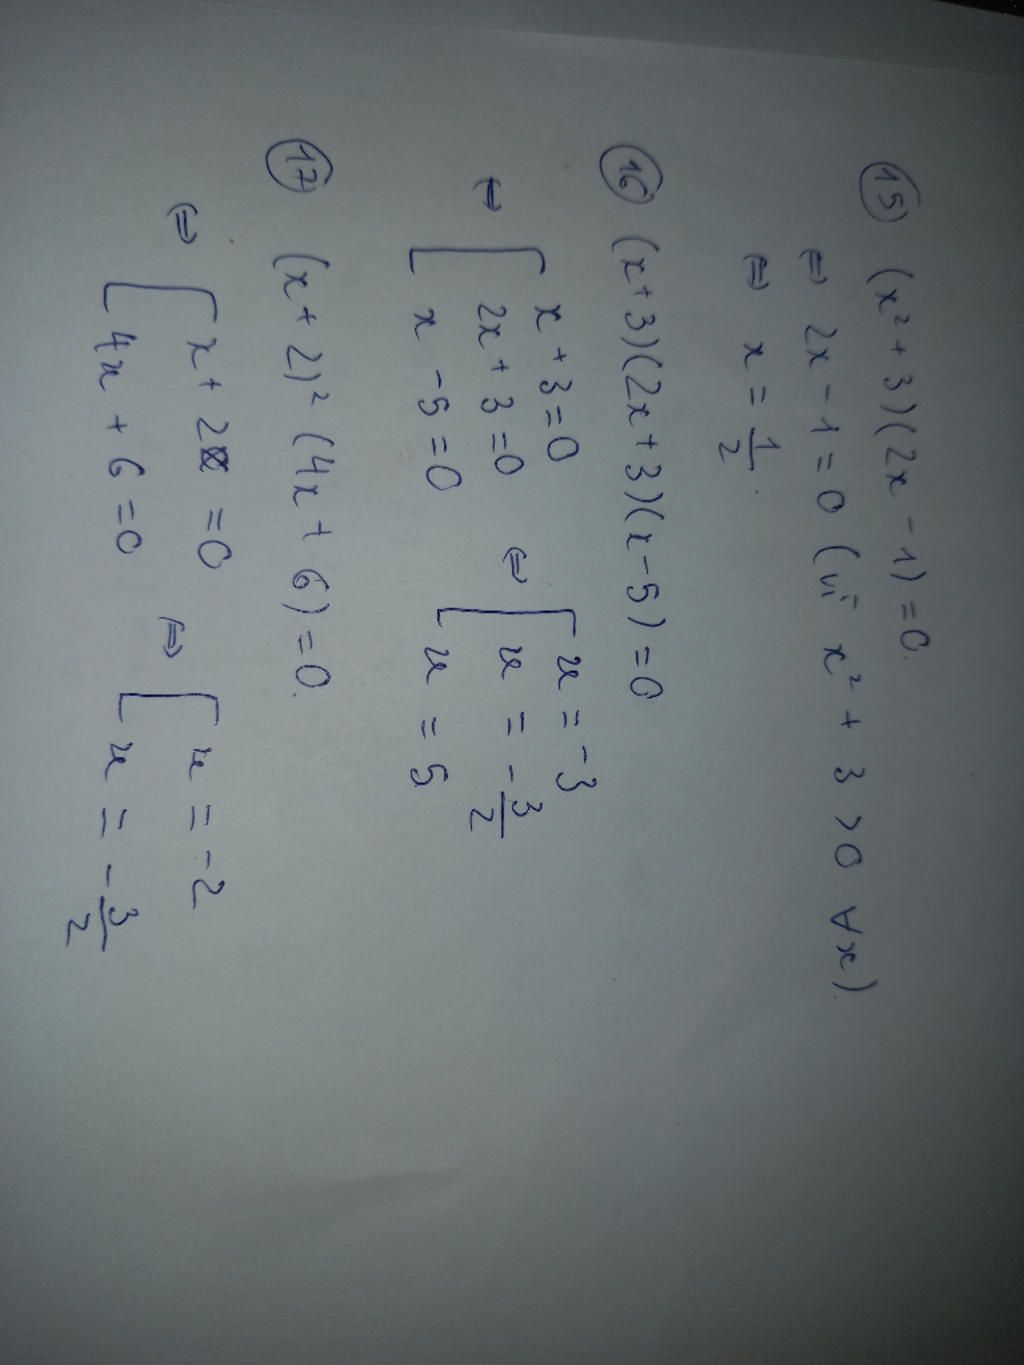 15 (x² + 3)(2x - 1) = 0.
⇔ 2x - 1 = 0 (vì x² + 3 > 0 ∀x)
⇔ x = 1/2.
16 (x + 3)(2x + 3)(x - 5) = 0
⇔ [ x + 3 = 0 ⇔ [ x = -3
2x + 3 = 0 x = -3/2
x - 5 = 0 x = 5
17 (x + 2)² (4x + 6) = 0.
⇔ [ x + 2 = 0 ⇔ [ x = -2
4x + 6 = 0 x = -3/2